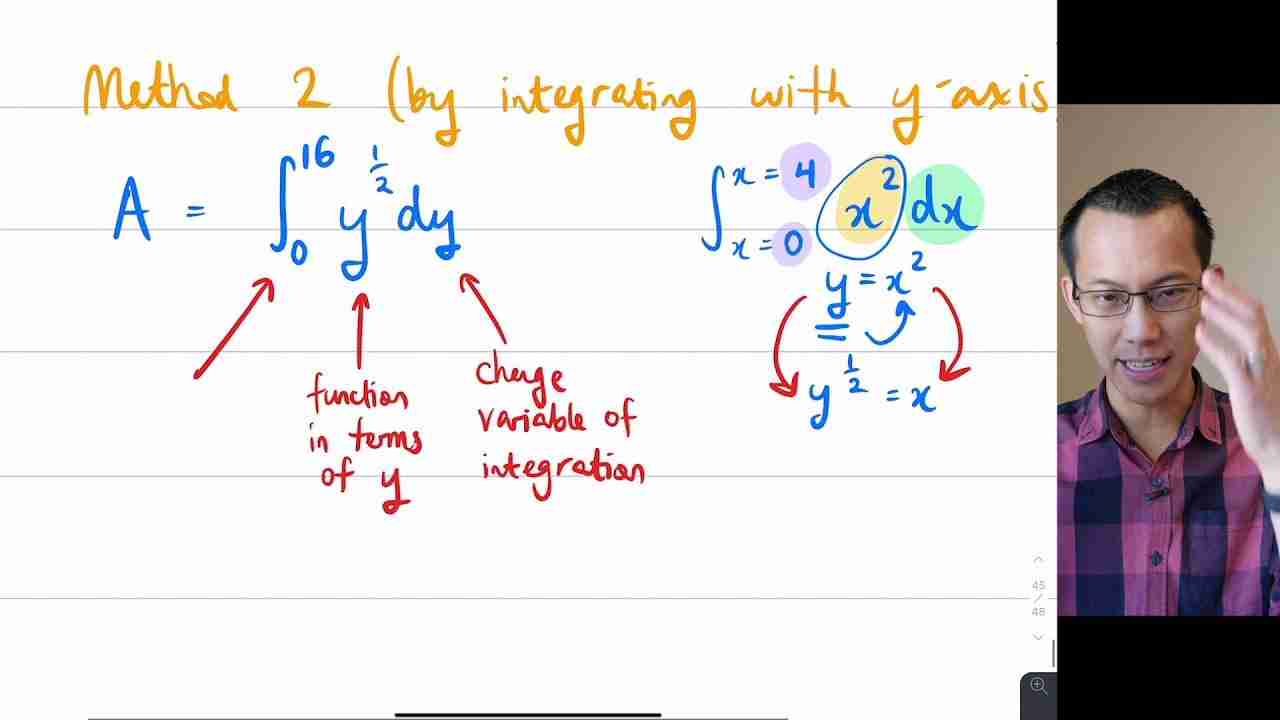 Method 2 (by integrating with y-axis
A = ∫₀¹⁶ y^(1/2) dy
∫ x = 4 x = 0 x² dx
y = x²
y^(1/2) = x
function
in terms
of y
change
variable of
integration
45
/
48